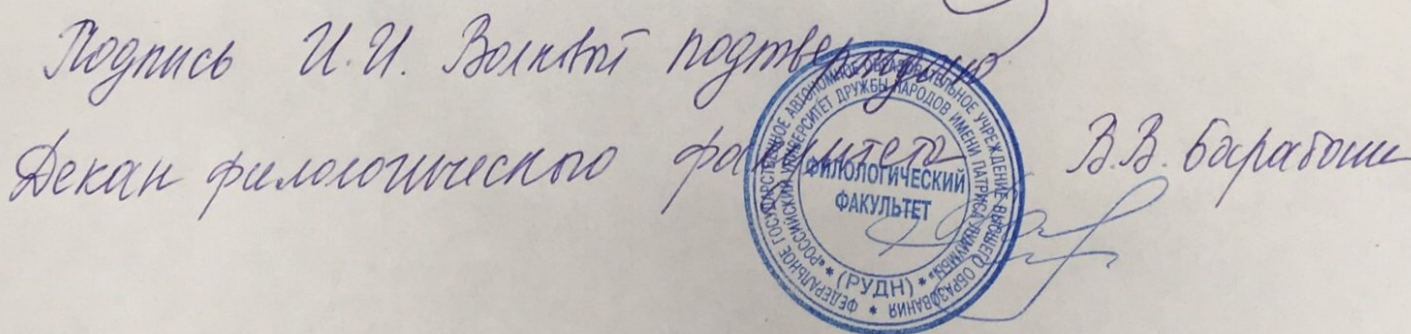 Подпись И.И. Волковой подтверждаю
Декан филологического факультета В.В. Барабаш
ФЕДЕРАЛЬНОЕ ГОСУДАРСТВЕННОЕ АВТОНОМНОЕ ОБРАЗОВАТЕЛЬНОЕ УЧРЕЖДЕНИЕ ВЫСШЕГО ОБРАЗОВАНИЯ *
* «РОССИЙСКИЙ УНИВЕРСИТЕТ ДРУЖБЫ НАРОДОВ ИМЕНИ ПАТРИСА ЛУМУМБЫ» *
ФИЛОЛОГИЧЕСКИЙ
ФАКУЛЬТЕТ
(РУДН)